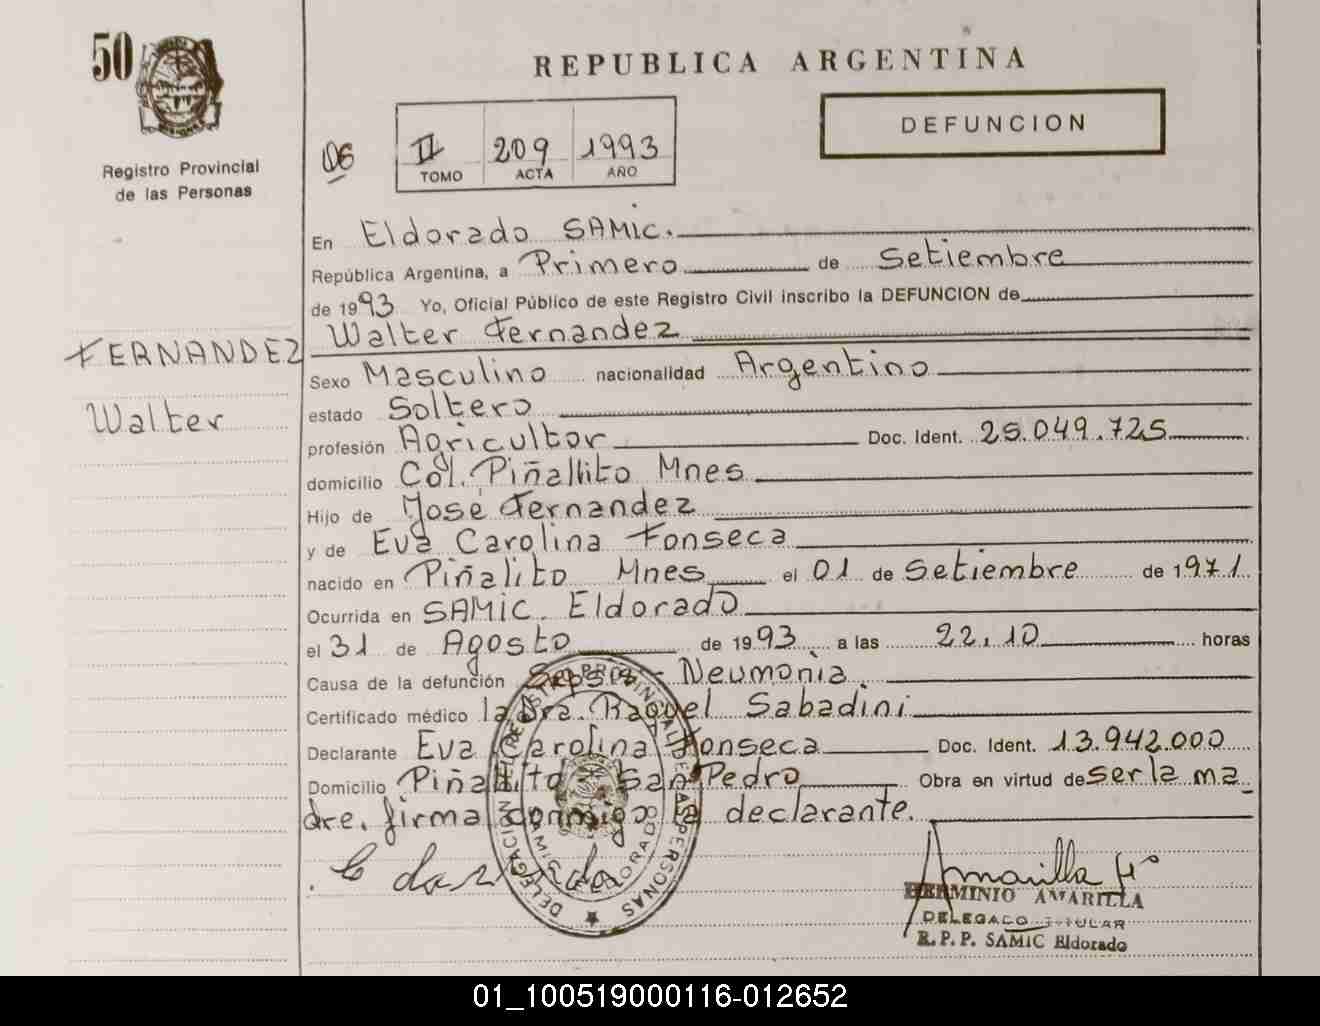 50
REPUBLICA ARGENTINA
DEFUNCION
Registro Provincial
de las Personas
06
II 209 1993
TOMO ACTA AÑO
En Eldorado SAMIC.
República Argentina, a Primero de Setiembre
de 1993 Yo, Oficial Público de este Registro Civil inscribo la DEFUNCION de
Walter Fernandez
FERNANDEZ
Walter
Sexo Masculino nacionalidad Argentino
estado Soltero
profesión Agricultor Doc. Ident. 25.049.725
domicilio Col. Piñallito Mnes
Hijo de José Fernandez
y de Eva Carolina Fonseca
nacido en Piñalito Mnes el 01 de Setiembre de 1971
Ocurrida en SAMIC. Eldorado
el 31 de Agosto de 1993 a las 22.10 horas
Causa de la defunción Sepsis - Neumonia
Certificado médico la Dra. Raquel Sabadini
Declarante Eva Carolina Fonseca Doc. Ident. 13.942.000
Domicilio Piñallito San Pedro Obra en virtud de ser la ma
dre. firma conmigo la declarante.
REGISTRO PROVINCIAL DE LAS PERSONAS
DELEGACION
SAMIC ELDORADO
Amarilla Hº
HERMINIO AMARILLA
DELEGADO TITULAR
R.P.P. SAMIC Eldorado
01_100519000116-012652